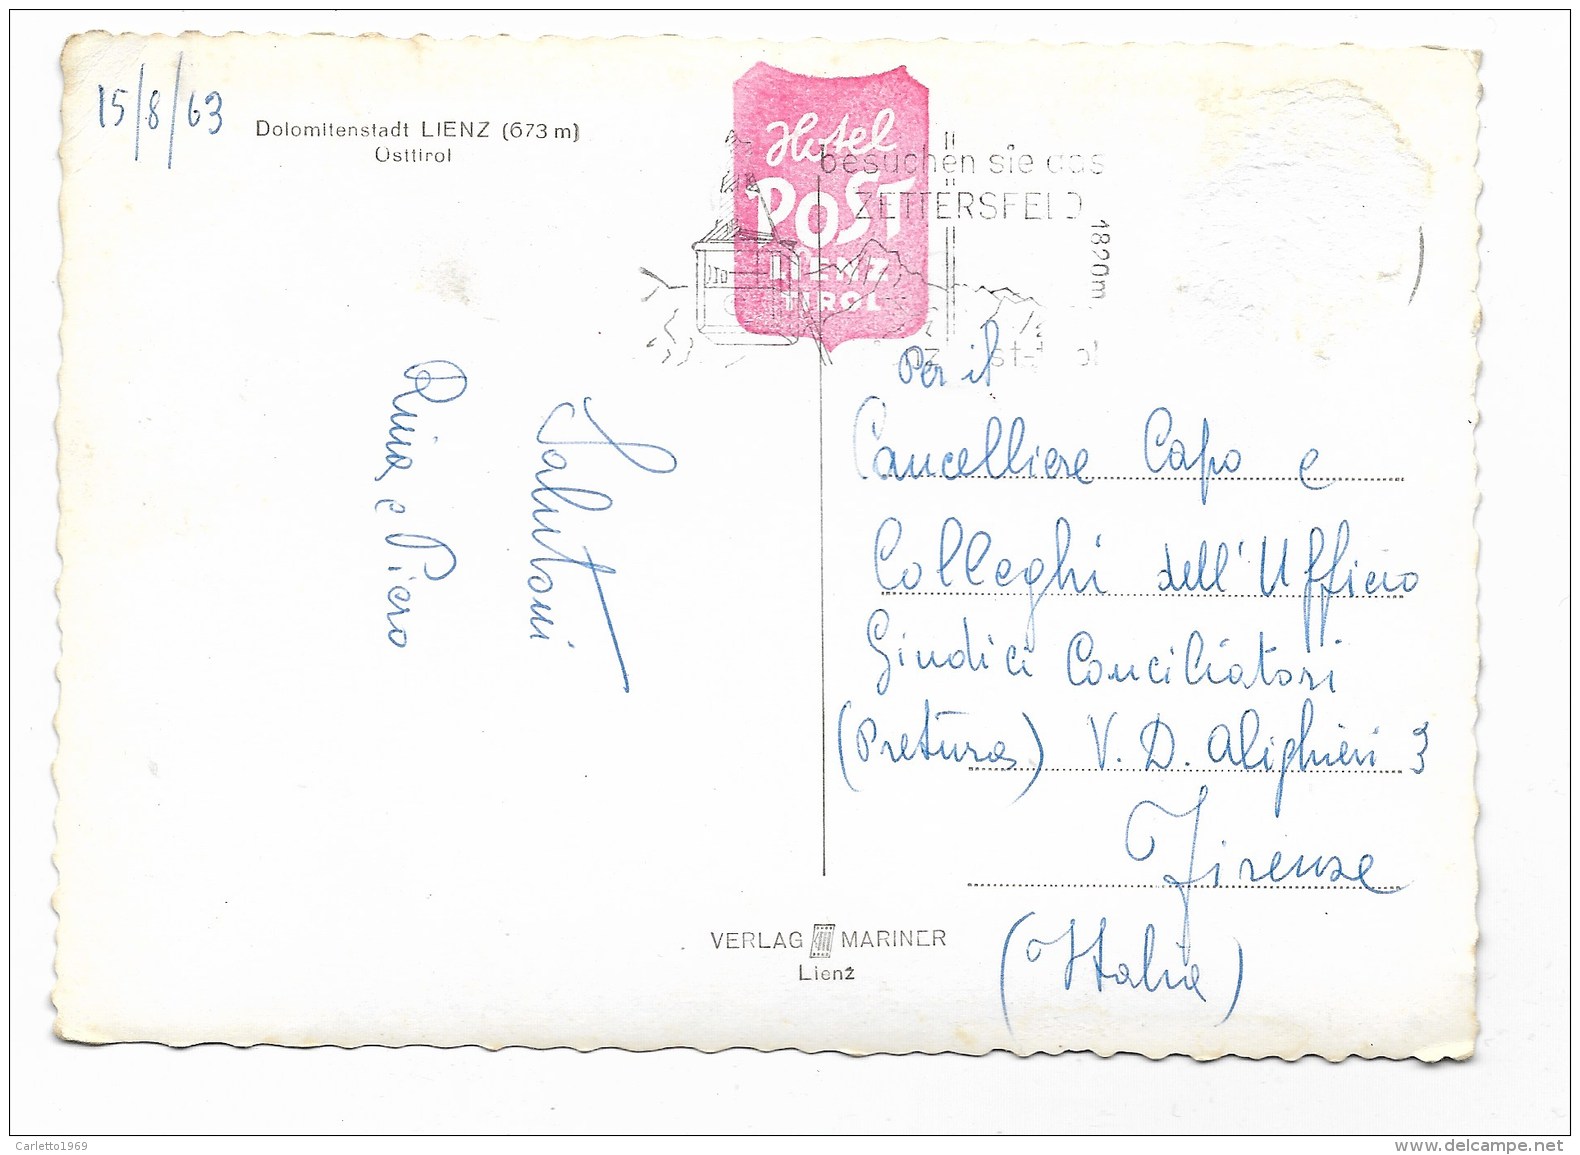 15/8/63
Dolomitenstadt LIENZ (673 m)
Osttirol
Hotel
POST
LIENZ
TIROL
besuchen sie das
ZETTERSFELD
1820m
Salutoni
Rina e Piero
Per il
Cancelliere Capo e
Colleghi dell'Ufficio
Giudici Conciliatori
(Pretura) V. D. Alighieri 3
Firenze
(Italia)
VERLAG MARINER
Lienz
Carletto1969
www.delcampe.net